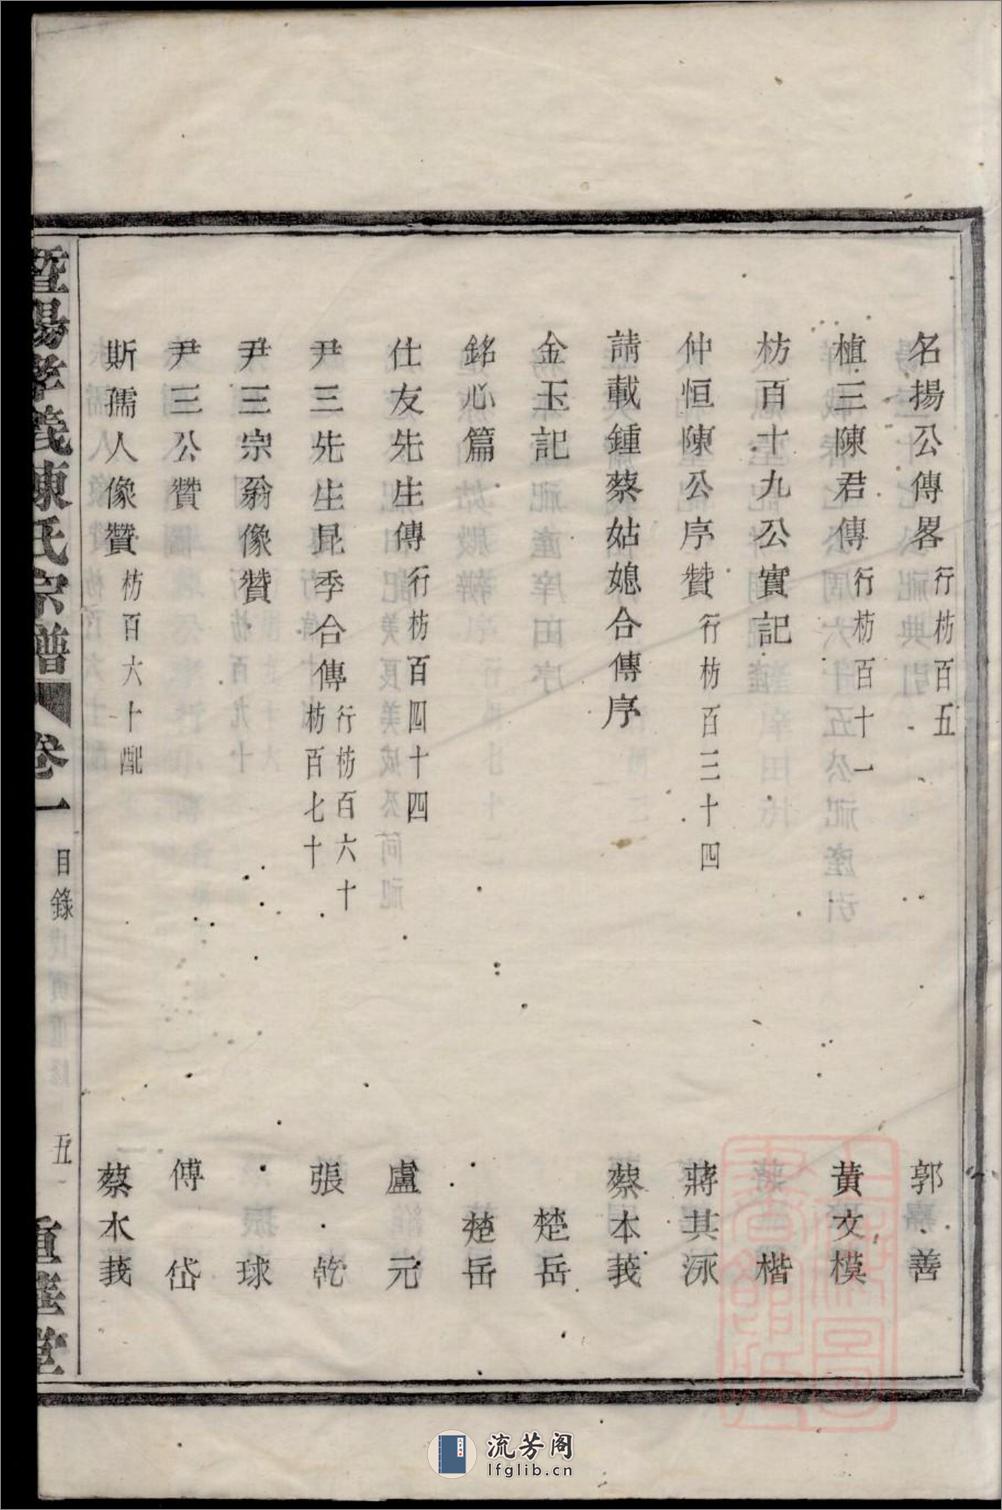 名揚公傳畧 行枋百五 郭嘉善
植三陳君傳 行枋百十一 黃文模
枋百十九公實記 楷
仲恒陳公序贊 行枋百三十四 蔣其泳
請載鍾蔡姑媳合傳序 蔡本莪
金玉記 楚岳
銘心篇 楚岳
仕友先生傳 行枋百四十四 盧元
尹三先生昆季合傳 行枋百六十 枋百七十 張乾
尹三宗翁像贊 球
尹三公贊 傅岱
斯孺人像贊 枋百六十配 蔡水莪
暨陽孝義陳氏宗譜 卷一 目錄 五
流芳阁
lfglib.cn